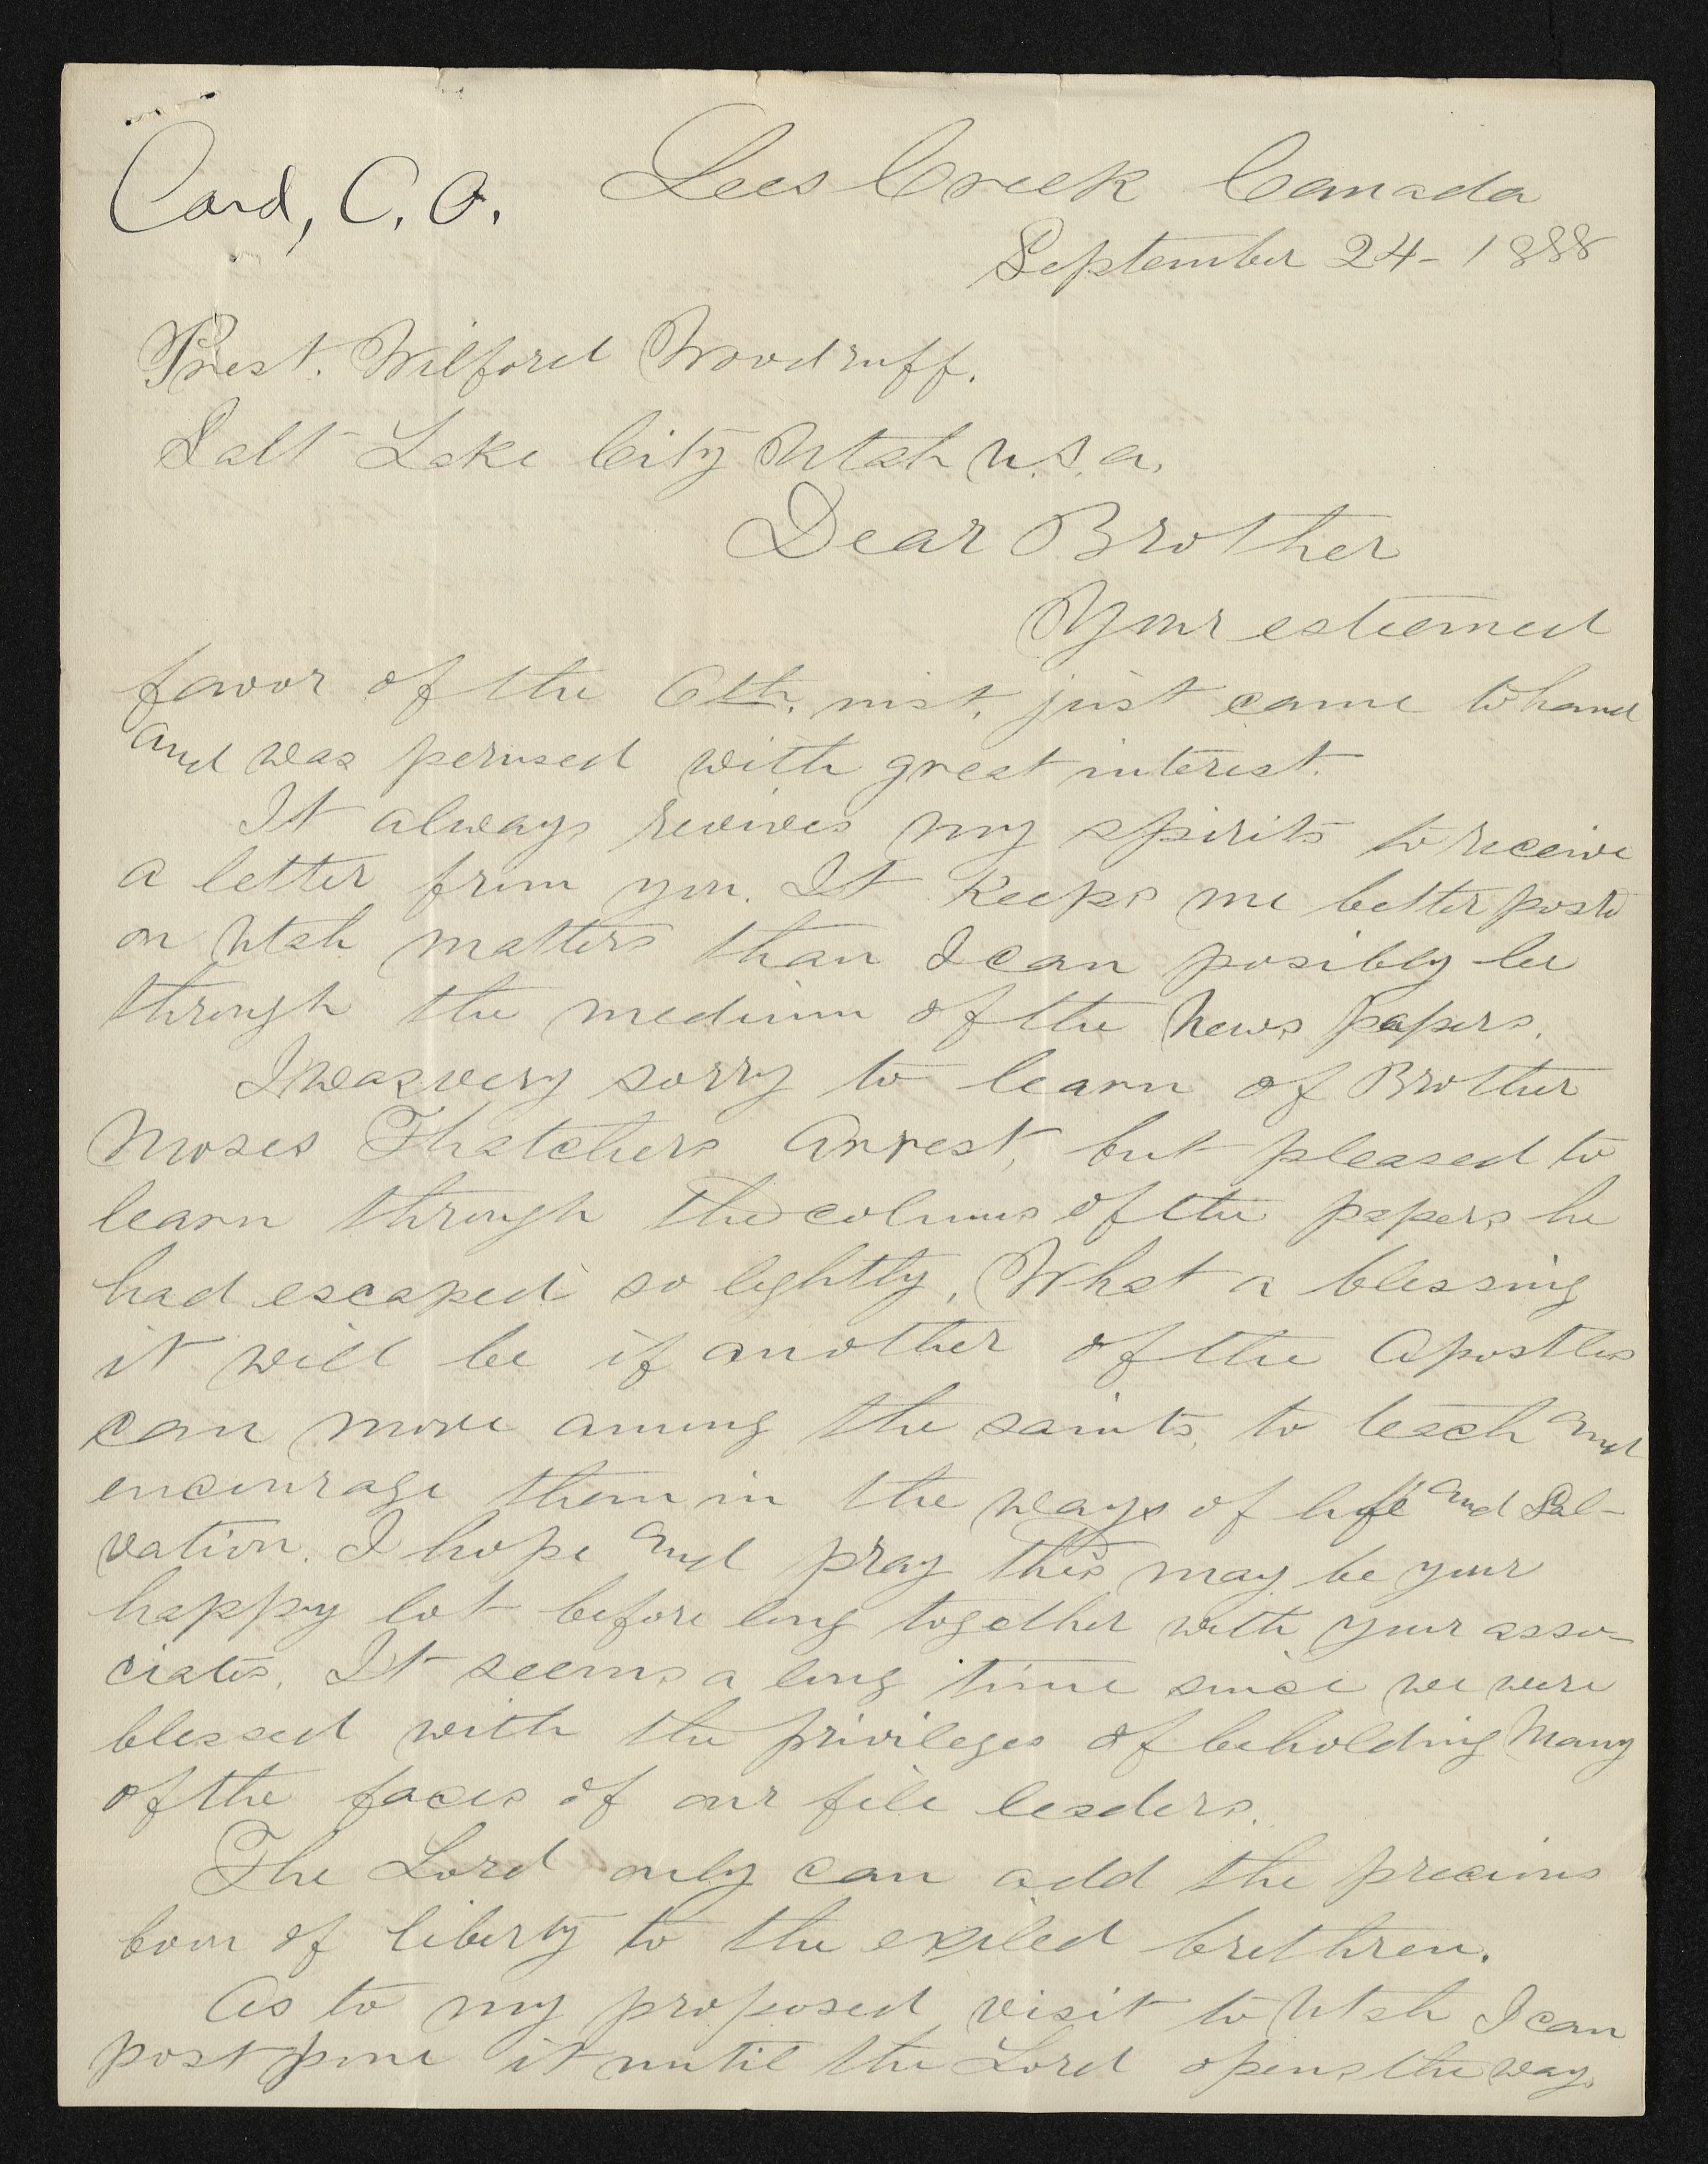 Card, C. O.
Lees Creek Canada
September 24 - 1888
Prest. Wilford Woodruff.
Salt Lake City Utah U. S. A.
Dear Brother
Your esteemed
favor of the 6th. inst. just came to hand
and was perused with great interest.
It always revives my spirits to receive
a letter from you. It keeps me better postd
on Utah matters than I can posibly be
through the medium of the News papers.
I was very sorry to learn of Brother
Moses Thatchers arrest, but pleased to
learn through the colums of the papers he
had escaped so lightly, What a blessing
it will be if another of the Apostles
can move among the saints, to teach and
encourage them in the ways of life and Sal-
vation. I hope and pray this may be your
happy lot before long together with your asso-
ciates. It seems a long time since we were
blessed with the privileges of beholding many
of the faces of our file leaders.
The Lord only can add the precious
boon of liberty to the exiled brethren.
As to my proposed visit to Utah I can
postpone it until the Lord opens the way.